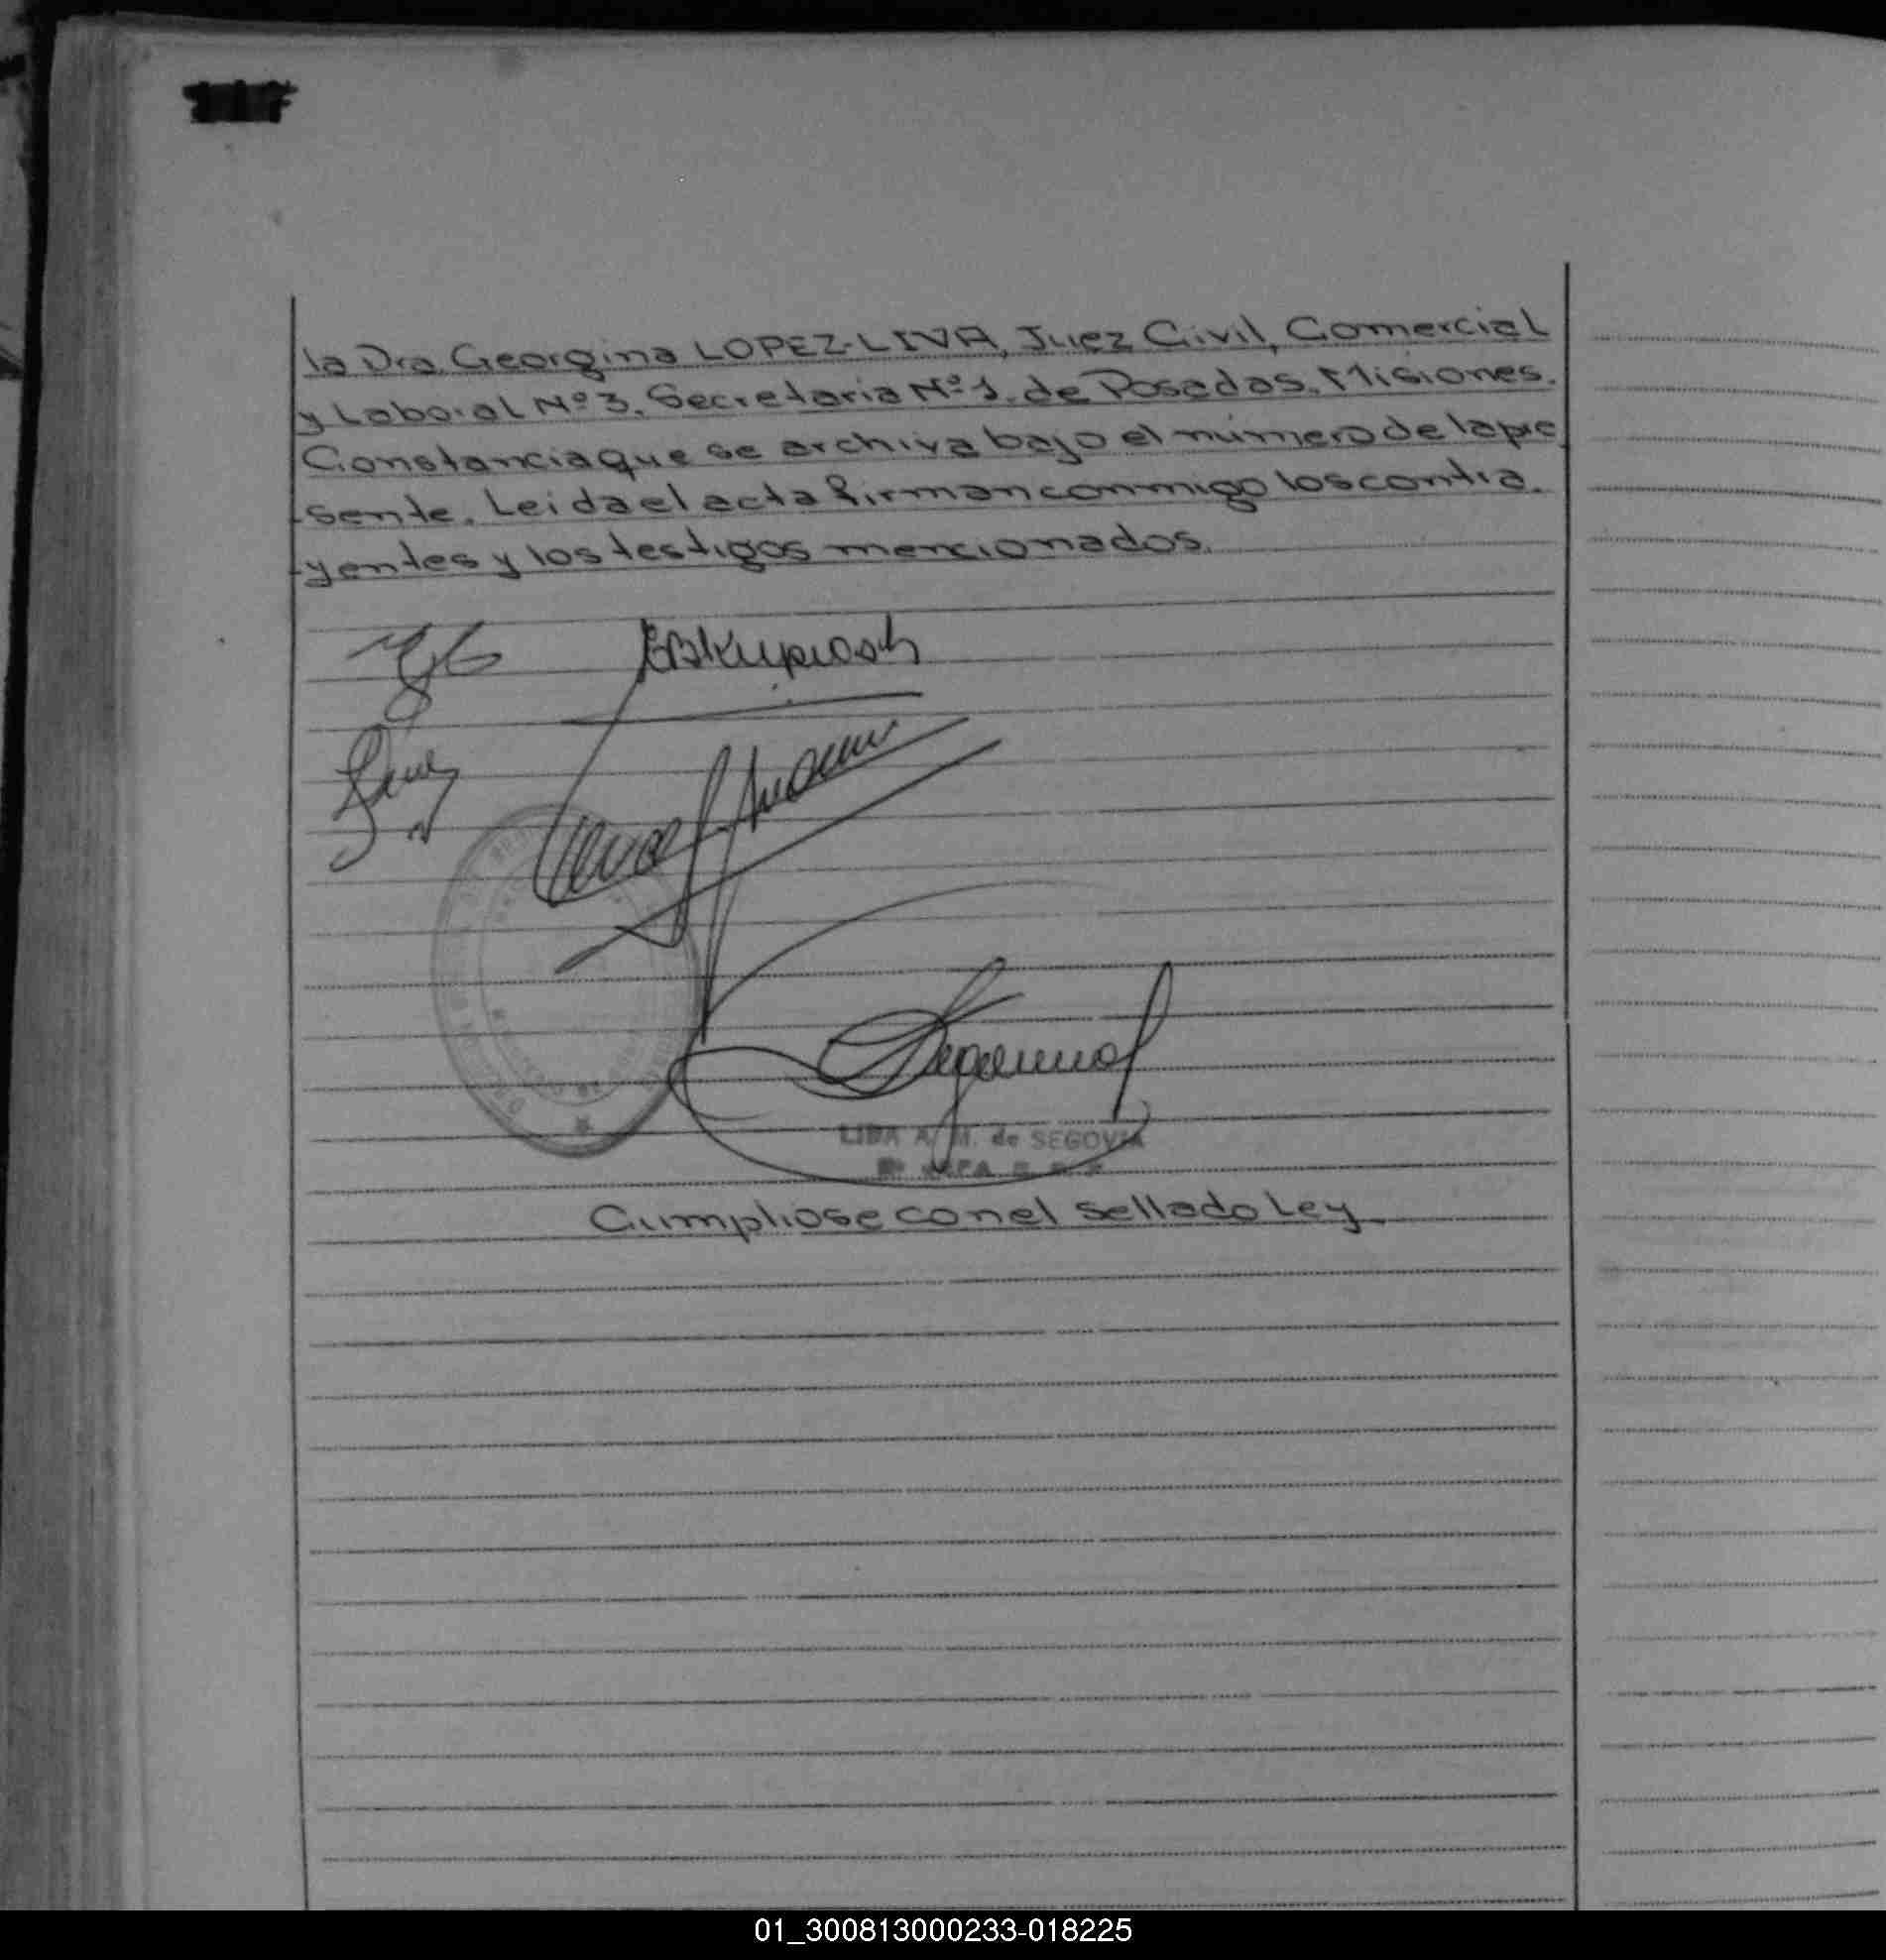 la Dra. Georgina LOPEZ-LIVA, Juez Civil, Comercial
y Laboral Nº 3, Secretaria Nº 1, de Posadas, Misiones.
Constancia que se archiva bajo el número de la pre
-sente. Leida el acta firman conmigo los contra.
-yentes y los testigos mencionados.
LIDA A. M. de SEGOVIA
Cumpliose con el sellado Ley
01_300813000233-018225